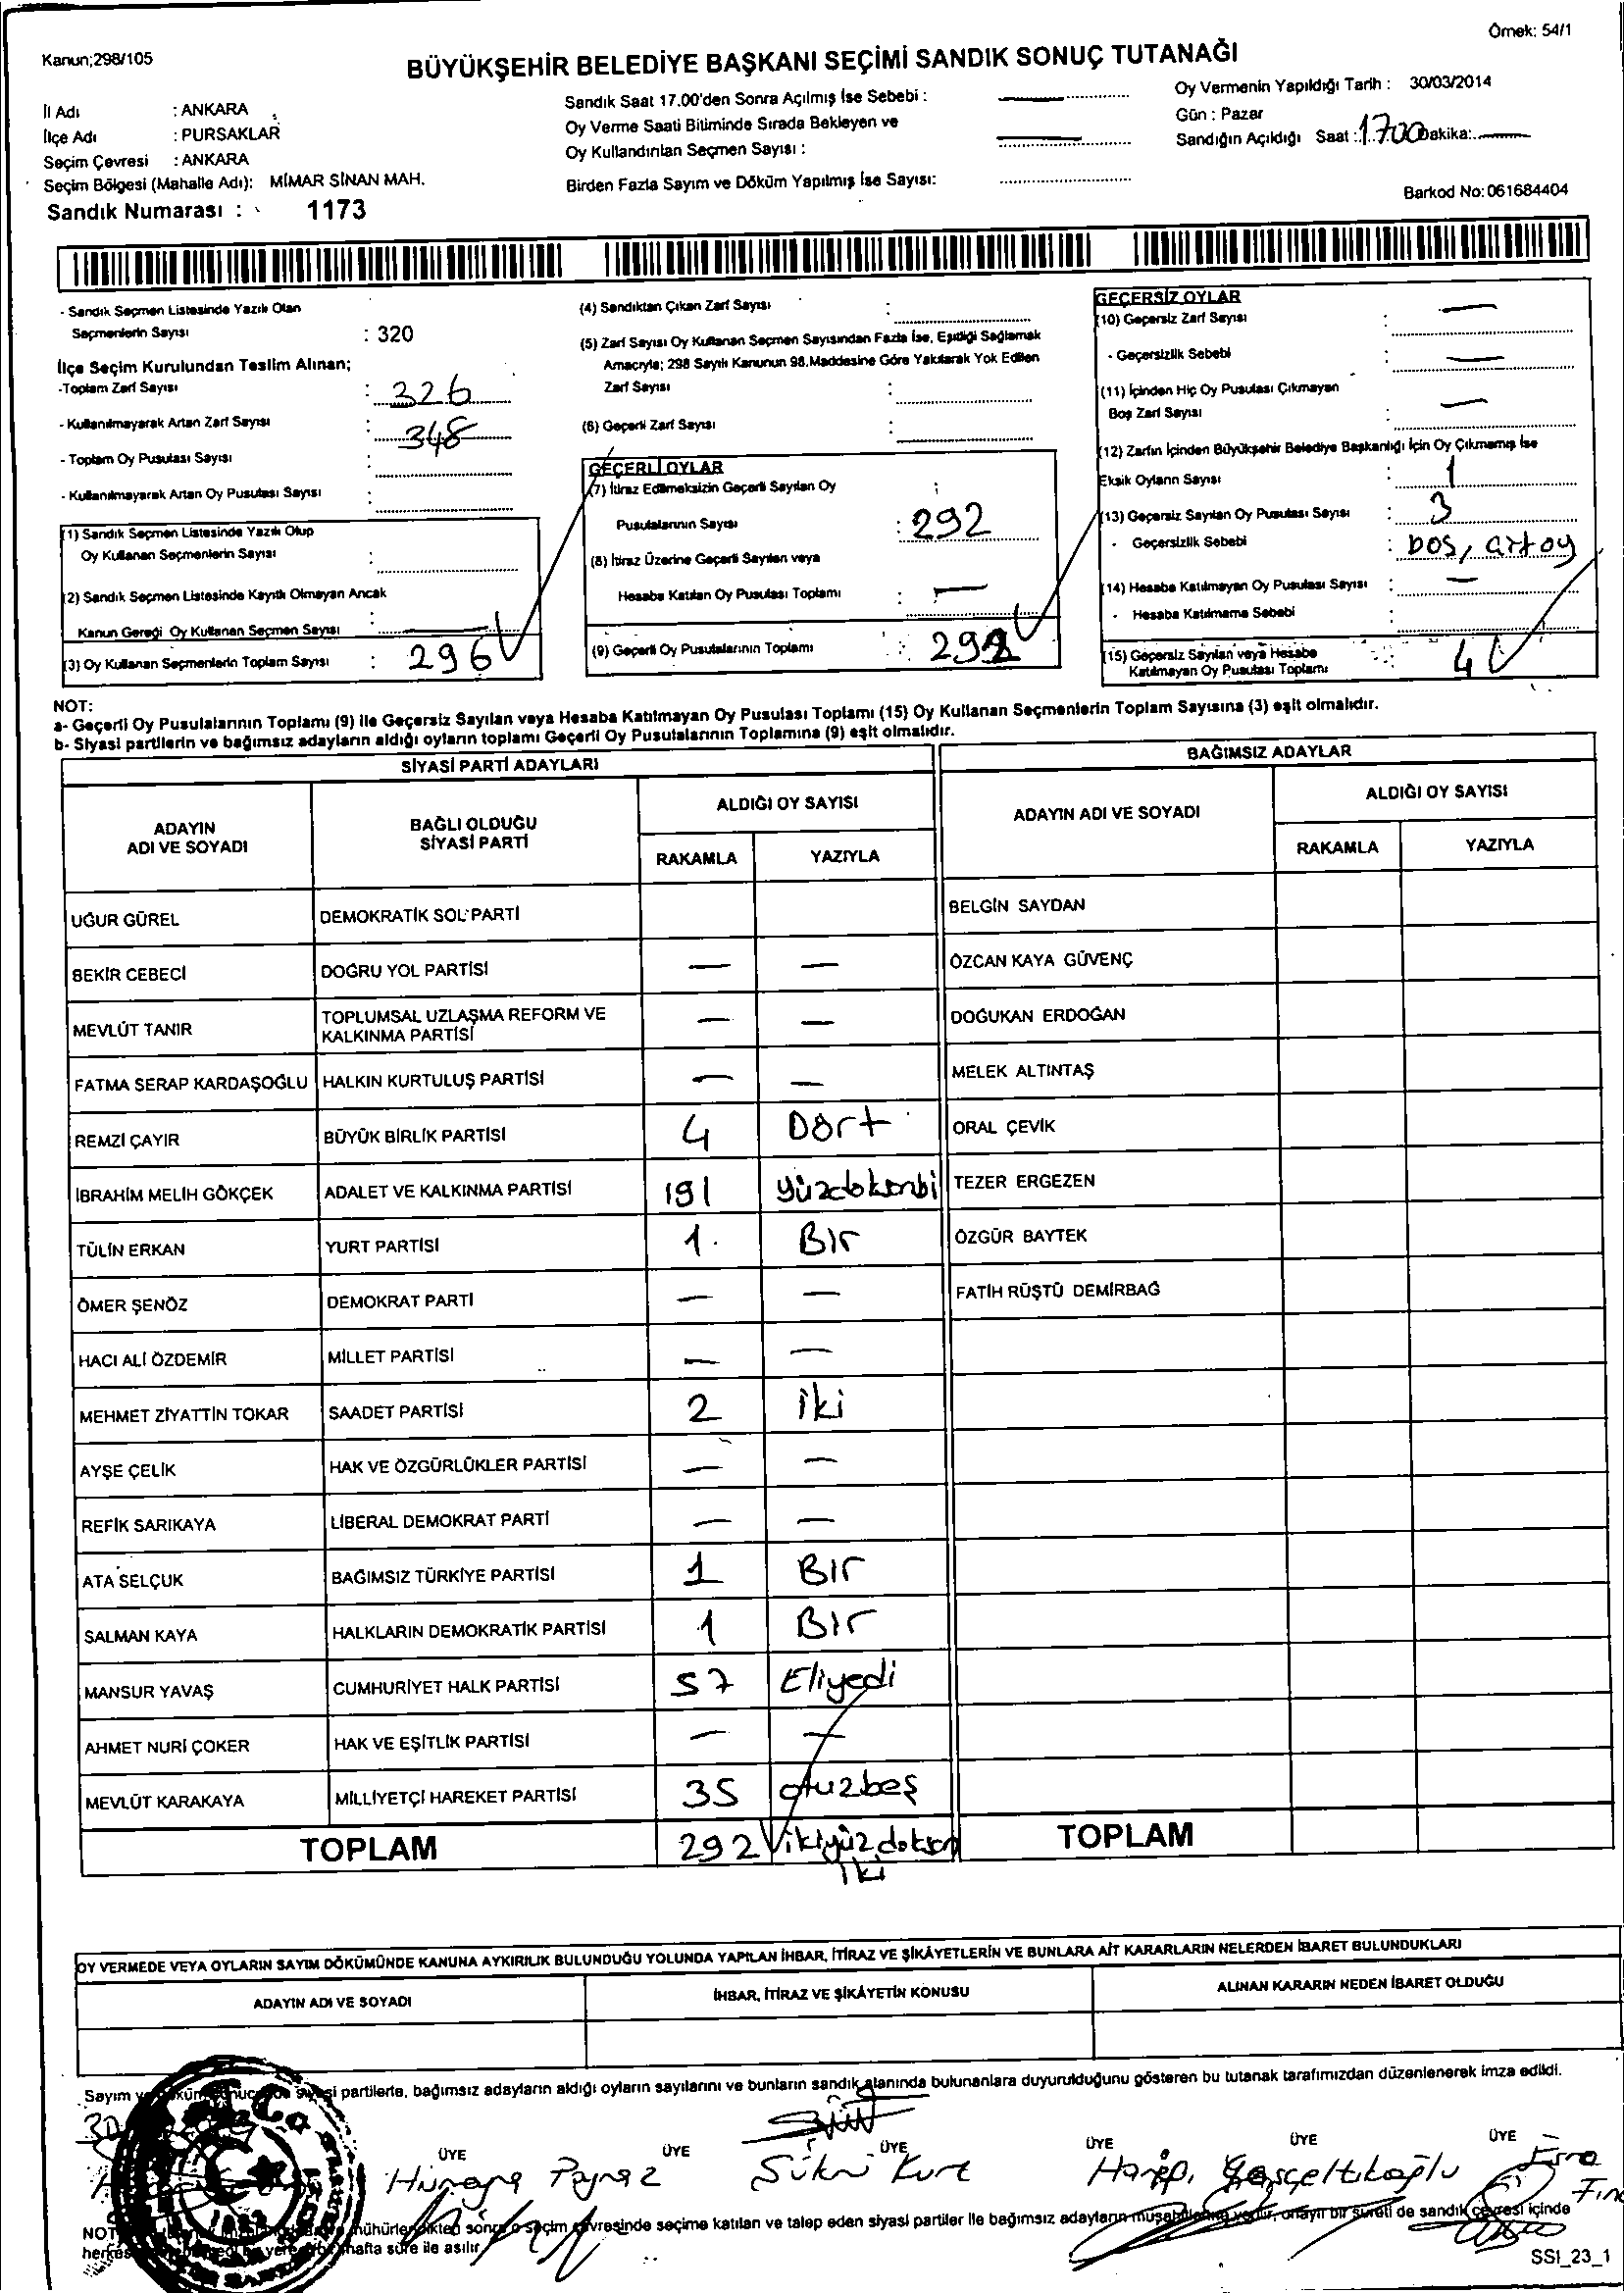 Örnek: 54/1
Kanun;298/105
BÜYÜKŞEHİR BELEDİYE BAŞKANI SEÇİMİ SANDIK SONUÇ TUTANAĞI
İl Adı : ANKARA
İlçe Adı : PURSAKLAR
Seçim Çevresi : ANKARA
Seçim Bölgesi (Mahalle Adı): MİMAR SİNAN MAH.
Sandık Numarası : 1173
Sandık Saat 17.00'den Sonra Açılmış İse Sebebi :
Oy Verme Saati Bitiminde Sırada Bekleyen ve
Oy Kullandırılan Seçmen Sayısı :
Birden Fazla Sayım ve Döküm Yapılmış İse Sayısı:
Oy Vermenin Yapıldığı Tarih : 30/03/2014
Gün : Pazar
Sandığın Açıldığı Saat : 1700 Dakika:
Barkod No: 061684404
- Sandık Seçmen Listesinde Yazılı Olan
Seçmenlerin Sayısı : 320
İlçe Seçim Kurulundan Teslim Alınan;
-Toplam Zarf Sayısı : 326
- Kullanılmayarak Artan Zarf Sayısı : 348
- Toplam Oy Pusulası Sayısı :
- Kullanılmayarak Artan Oy Pusulası Sayısı :
(1) Sandık Seçmen Listesinde Yazılı Olup
Oy Kullanan Seçmenlerin Sayısı :
(2) Sandık Seçmen Listesinde Kayıtlı Olmayan Ancak
Kanun Gereği Oy Kullanan Seçmen Sayısı :
(3) Oy Kullanan Seçmenlerin Toplam Sayısı : 296
(4) Sandıktan Çıkan Zarf Sayısı :
(5) Zarf Sayısı Oy Kullanan Seçmen Sayısından Fazla İse, Eşitliği Sağlamak
Amacıyla; 298 Sayılı Kanunun 98.Maddesine Göre Yakılarak Yok Edilen
Zarf Sayısı :
(6) Geçerli Zarf Sayısı :
GEÇERLİ OYLAR
(7) İtiraz Edilmeksizin Geçerli Sayılan Oy
Pusulalarının Sayısı : 292
(8) İtiraz Üzerine Geçerli Sayılan veya
Hesaba Katılan Oy Pusulası Toplamı : —
(9) Geçerli Oy Pusulalarının Toplamı : 292
GEÇERSİZ OYLAR
(10) Geçersiz Zarf Sayısı : —
- Geçersizlik Sebebi : —
(11) İçinden Hiç Oy Pusulası Çıkmayan
Boş Zarf Sayısı : —
(12) Zarfın İçinden Büyükşehir Belediye Başkanlığı İçin Oy Çıkmamış İse
Eksik Oyların Sayısı : 1
(13) Geçersiz Sayılan Oy Pusulası Sayısı : 3
- Geçersizlik Sebebi : bos, artoy
(14) Hesaba Katılmayan Oy Pusulası Sayısı : —
- Hesaba Katılmama Sebebi :
(15) Geçersiz Sayılan veya Hesaba
Katılmayan Oy Pusulası Toplamı : 4
NOT:
a- Geçerli Oy Pusulalarının Toplamı (9) ile Geçersiz Sayılan veya Hesaba Katılmayan Oy Pusulası Toplamı (15) Oy Kullanan Seçmenlerin Toplam Sayısına (3) eşit olmalıdır.
b- Siyasi partilerin ve bağımsız adayların aldığı oyların toplamı Geçerli Oy Pusulalarının Toplamına (9) eşit olmalıdır.
SİYASİ PARTİ ADAYLARI
BAĞIMSIZ ADAYLAR
ADAYIN ADI VE SOYADI
BAĞLI OLDUĞU SİYASİ PARTİ
ALDIĞI OY SAYISI
RAKAMLA YAZIYLA
ADAYIN ADI VE SOYADI
ALDIĞI OY SAYISI
RAKAMLA YAZIYLA
UĞUR GÜREL DEMOKRATİK SOL PARTİ BELGİN SAYDAN
BEKİR CEBECİ DOĞRU YOL PARTİSİ — — ÖZCAN KAYA GÜVENÇ
MEVLÜT TANIR TOPLUMSAL UZLAŞMA REFORM VE KALKINMA PARTİSİ — — DOĞUKAN ERDOĞAN
FATMA SERAP KARDAŞOĞLU HALKIN KURTULUŞ PARTİSİ — — MELEK ALTINTAŞ
REMZİ ÇAYIR BÜYÜK BİRLİK PARTİSİ 4 Dört ORAL ÇEVİK
İBRAHİM MELİH GÖKÇEK ADALET VE KALKINMA PARTİSİ 191 yüzdoksnbi TEZER ERGEZEN
TÜLİN ERKAN YURT PARTİSİ 1 Bir ÖZGÜR BAYTEK
ÖMER ŞENÖZ DEMOKRAT PARTİ — — FATİH RÜŞTÜ DEMİRBAĞ
HACI ALİ ÖZDEMİR MİLLET PARTİSİ — —
MEHMET ZİYATTİN TOKAR SAADET PARTİSİ 2 iki
AYŞE ÇELİK HAK VE ÖZGÜRLÜKLER PARTİSİ — —
REFİK SARIKAYA LİBERAL DEMOKRAT PARTİ — —
ATA SELÇUK BAĞIMSIZ TÜRKİYE PARTİSİ 1 Bir
SALMAN KAYA HALKLARIN DEMOKRATİK PARTİSİ 1 Bir
MANSUR YAVAŞ CUMHURİYET HALK PARTİSİ 57 Eliyedi
AHMET NURİ ÇOKER HAK VE EŞİTLİK PARTİSİ — —
MEVLÜT KARAKAYA MİLLİYETÇİ HAREKET PARTİSİ 35 otuzbeş
TOPLAM 292 ikiyüz doksan iki TOPLAM
OY VERMEDE VEYA OYLARIN SAYIM DÖKÜMÜNDE KANUNA AYKIRILIK BULUNDUĞU YOLUNDA YAPILAN İHBAR, İTİRAZ VE ŞİKÂYETLERİN VE BUNLARA AİT KARARLARIN NELERDEN İBARET BULUNDUKLARI
ADAYIN ADI VE SOYADI İHBAR, İTİRAZ VE ŞİKÂYETİN KONUSU ALINAN KARARIN NEDEN İBARET OLDUĞU
Sayım partilerle, bağımsız adayların aldığı oyların sayılarını ve bunların sandık alanında bulunanlara duyurulduğunu gösteren bu tutanak tarafımızdan düzenlenerek imza edildi.
ÜYE ÜYE ÜYE ÜYE ÜYE ÜYE
Poyraz Şükrü Kurt Esra
NOT seçim çevresinde seçime katılan ve talep eden siyasi partiler ile bağımsız adayların bir sureti de sandık çevresi içinde
hafta süre ile asılır.
SSI_23_1